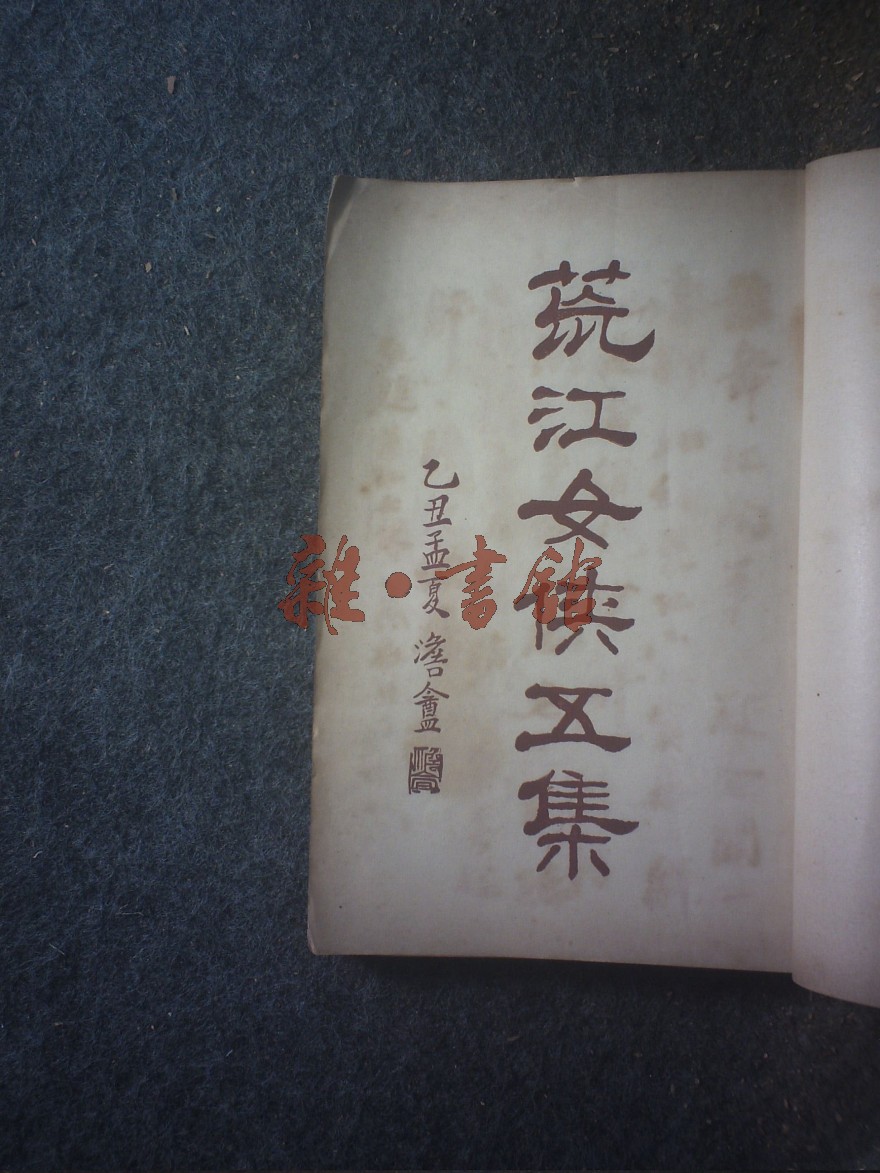 荒江女俠五集
乙丑孟夏 澹盦
雜·書館